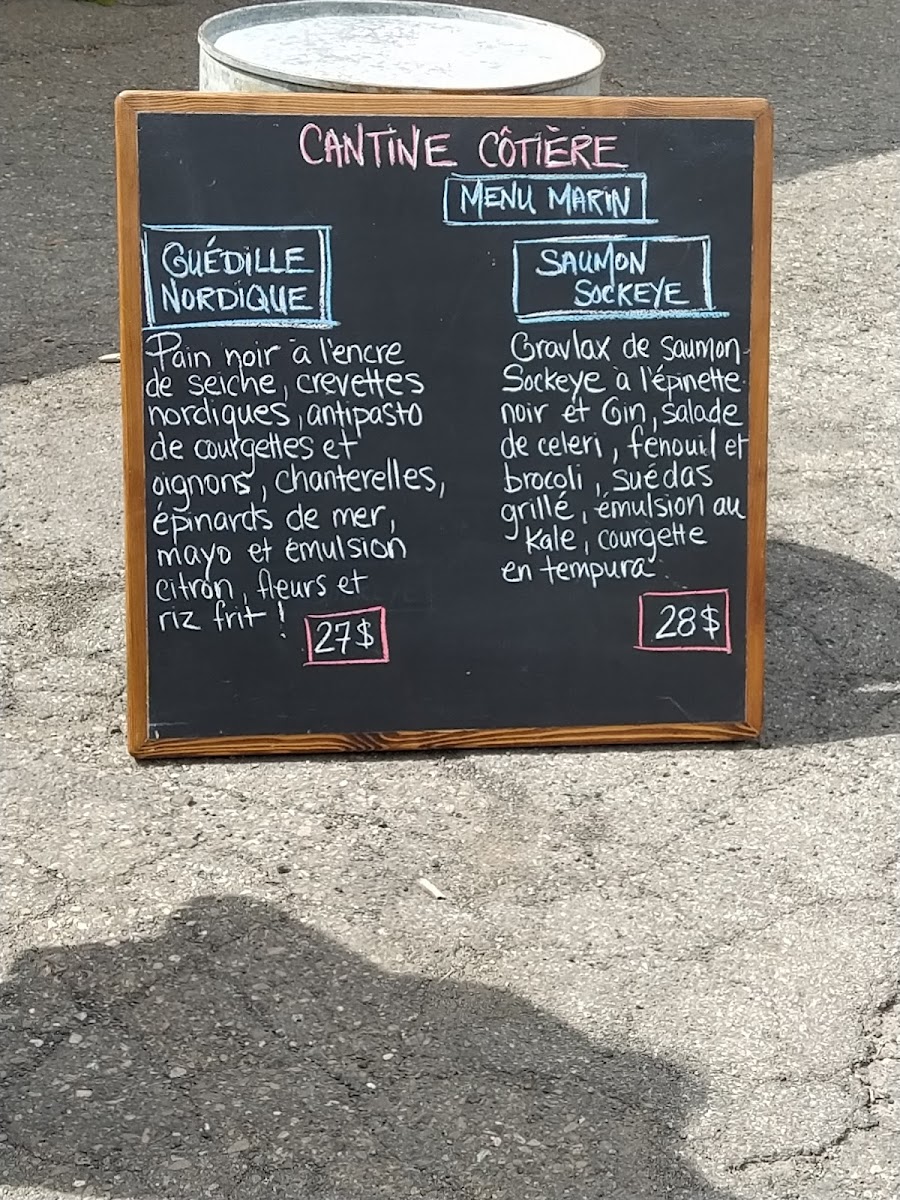 CANTINE CÔTIÈRE
MENU MARIN
GUÉDILLE
NORDIQUE
Pain noir à l'encre
de seiche, crevettes
nordiques, antipasto
de courgettes et
oignons, chanterelles,
épinards de mer,
mayo et émulsion
citron, fleurs et
riz frit !
27$
SAUMON
SOCKEYE
Gravlax de saumon
Sockeye à l'épinette
noir et Gin, salade
de celeri, fenouil et
brocoli, suédas
grillé, émulsion au
Kale, courgette
en tempura
28$